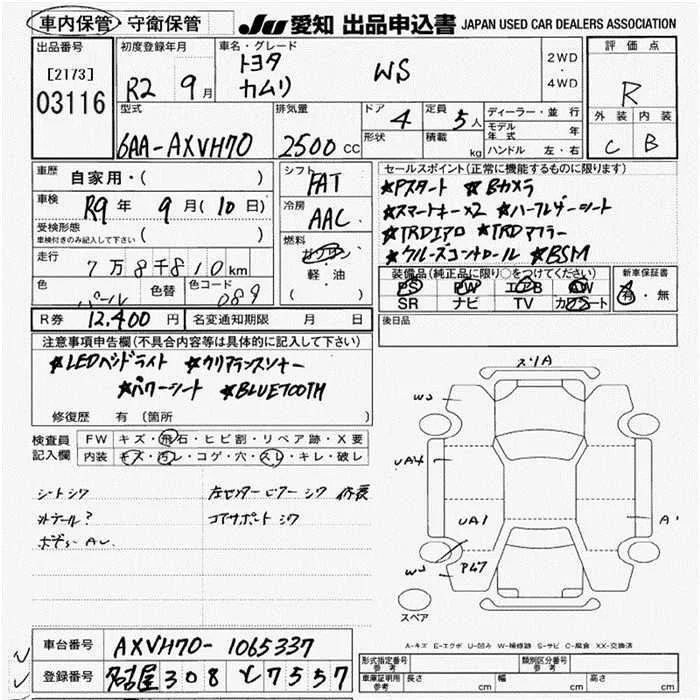 車内保管・守衛保管
JU 愛知 出品申込書 JAPAN USED CAR DEALERS ASSOCIATION
出品番号
[2173]
03116
初度登録年月
R2 9月
車名・グレード
トヨタ
カムリ WS
2WD
・
4WD
評価点
R
外装 内装
C B
型式
6AA-AXVH70
排気量
2500 CC
ドア 4
形状
定員 5人
積載 kg
ディーラー・並行
モデル年式 年
ハンドル 左・右
車歴
自家用・( )
車検
R9年 9月(10日)
受検形態
車検付きのみ記入して下さい ( )
走行
7万8千810km
色
パール
色替
色コード
089
シフト
FAT
冷房
AAC
燃料
ガソリン
軽・油
( )
セールスポイント(正常に機能するものに限ります)
★Pスタート ★Bカメラ
★スマートキー×2 ★ハーフレザーシート
★TRDエアロ ★TRDマフラー
★クルーズコントロール ★BSM
装備品(純正品に限り○をつけてください)
PS PW エアB AW
SR ナビ TV カワシート
新車保証書
有・無
R券 12,400円
名変通知期限 月 日
後日品
注意事項申告欄(不具合内容等は具体的に記入して下さい)
★LEDヘッドライト ★クリアランスソナー
★パワーシート ★BLUETOOTH
修復歴 有 (箇所 )
検査員記入欄
FW キズ・飛石・ヒビ割・リペア跡・X要
内装 キズ・汚レ・コゲ・穴・スレ・キレ・破レ
シートシワ
外テール?
左センターピラー シワ 修復
コアサポート シワ
スリA
WS
UA4
UA1
A'
WS
スペア
A-キズ E-エクボ U-凹み W-補修跡 S-サビ C-腐食 XX-交換済
車台番号 AXVH70-1065337
登録番号 名古屋 308 7557
形式指定番号
参考
類別区分番号
参考
車庫証明用
参考
長さ cm 幅 cm 高さ cm